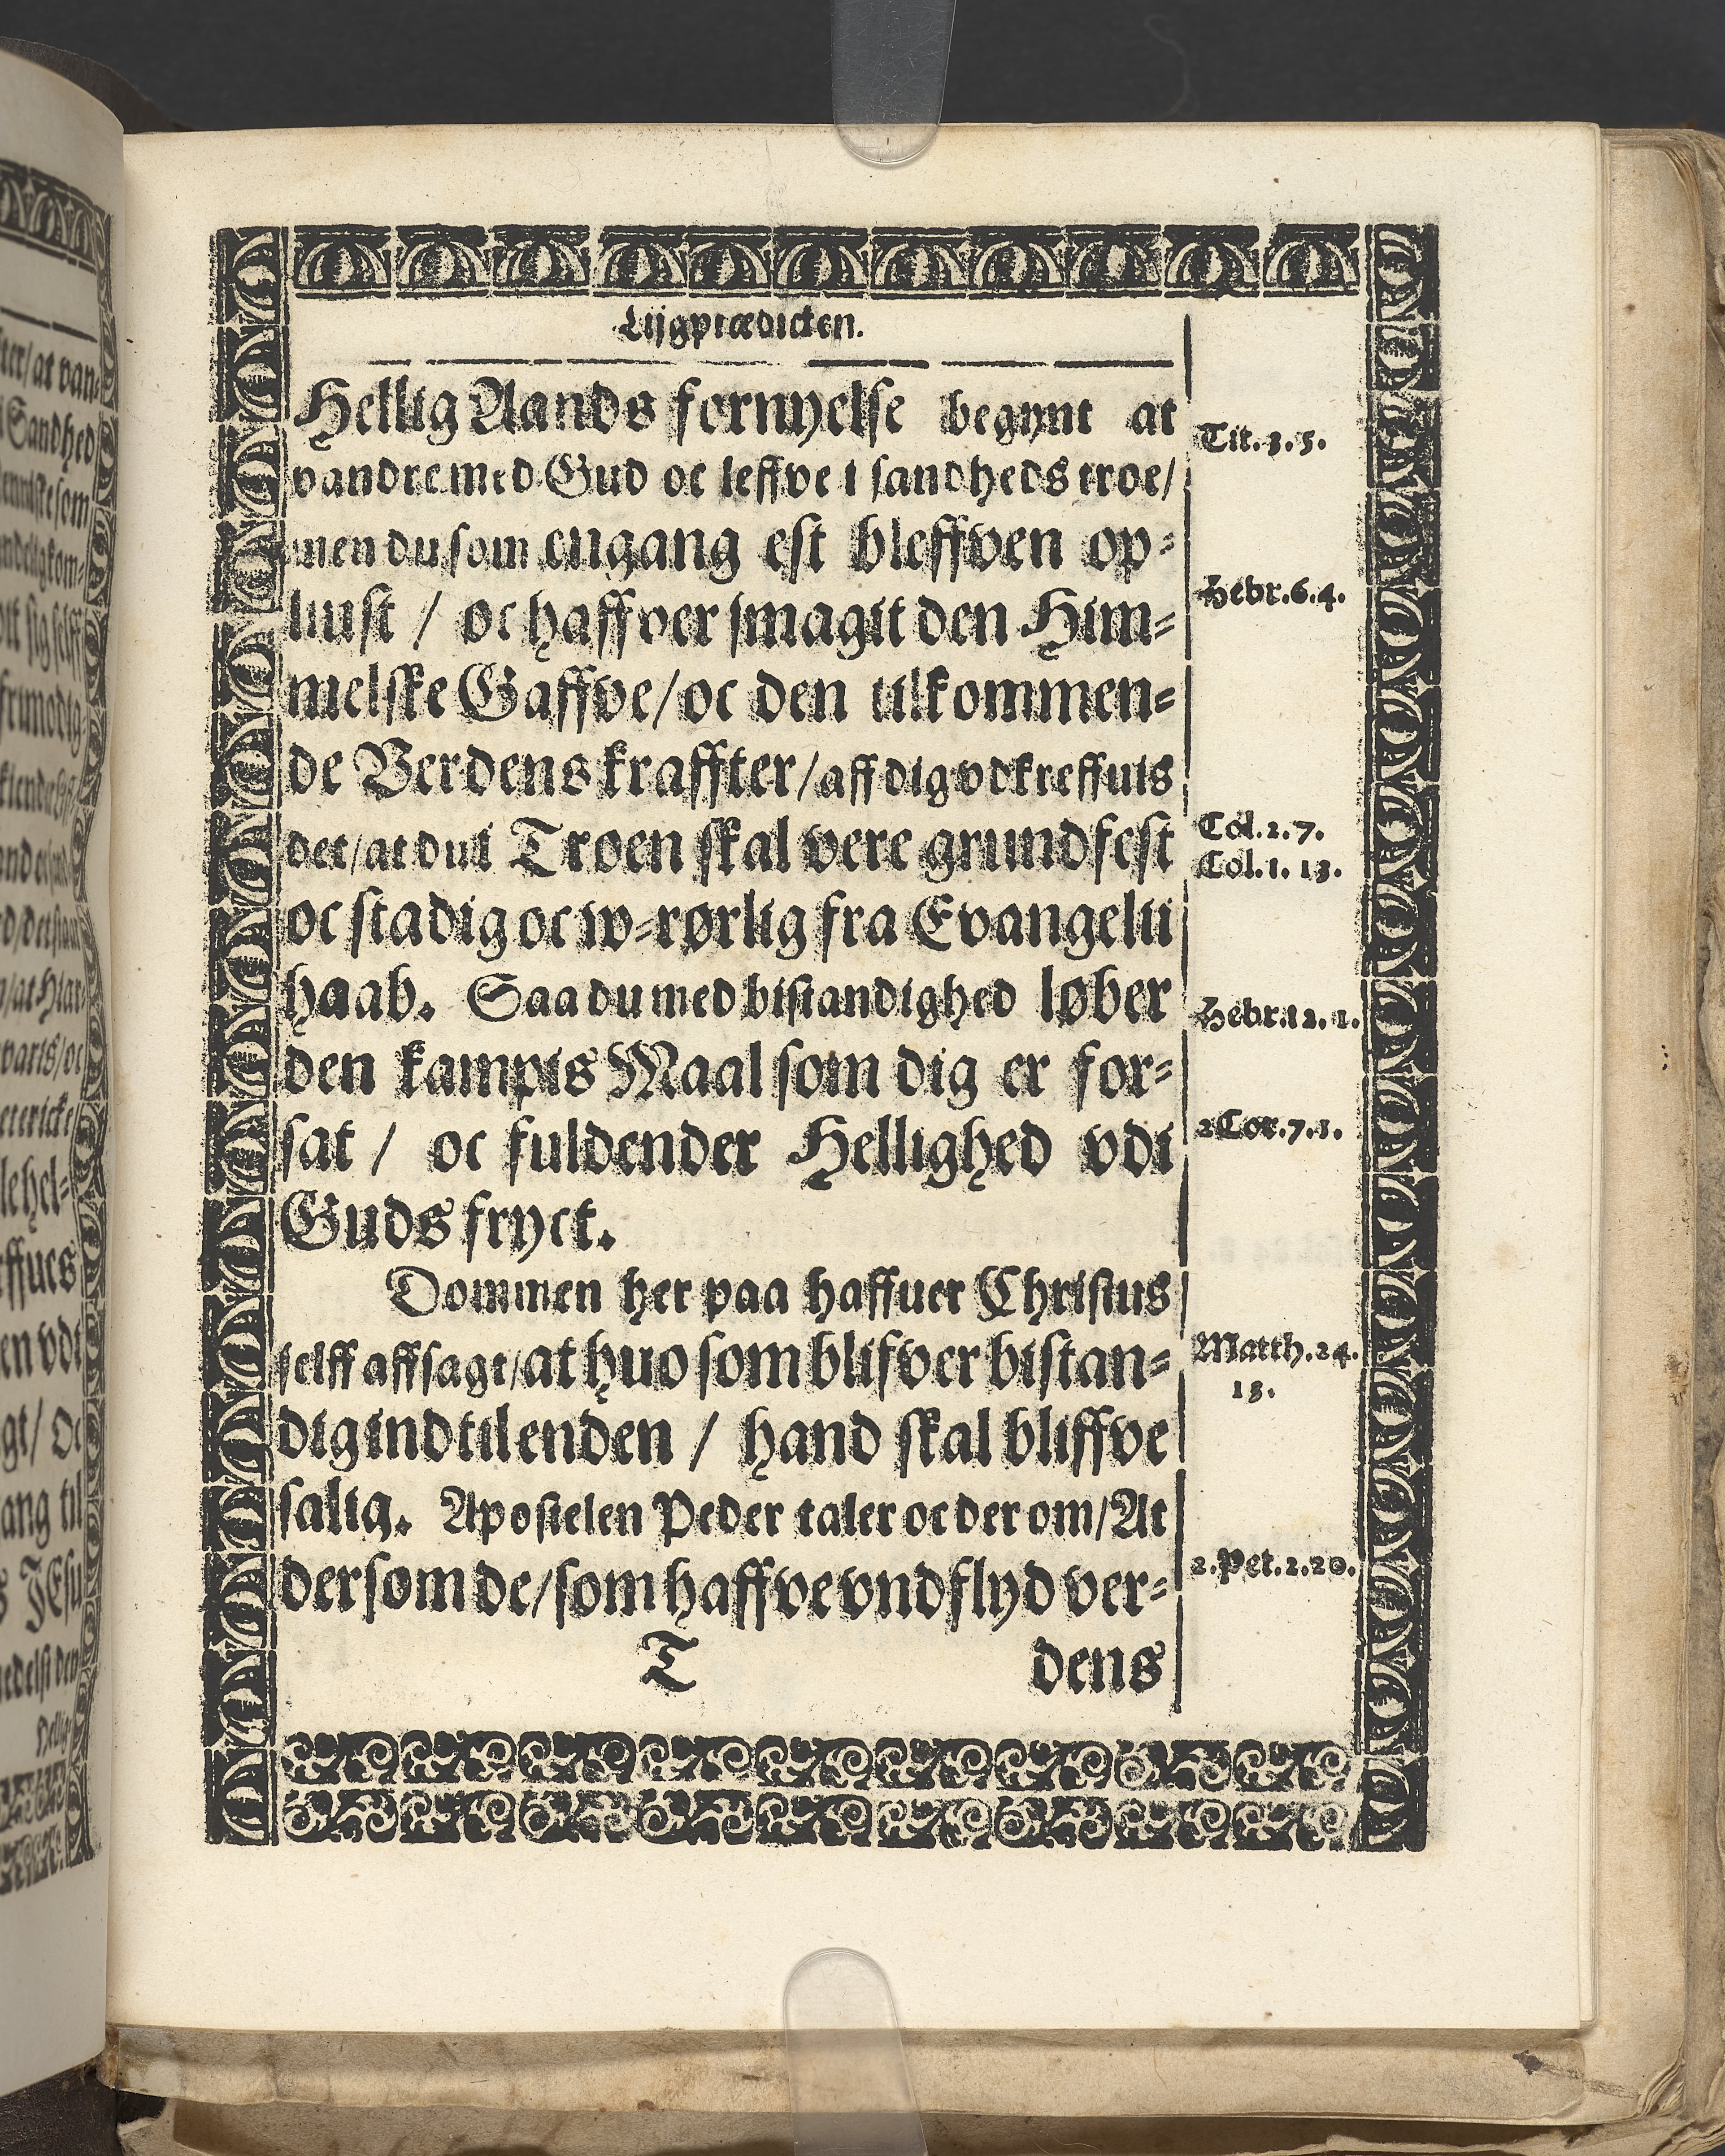 Lijgprædicken.
Hellig Aands fornyelse begynt at
vandre med Gud oc leffve i sandheds troe/
men du som engang est bleffven op-
liust / oc haffver smagit den Him-
melske Gaffve/oc den tilkommen-
de Verdens kraffter/aff dig vdkreffuis
det/at du i Troen skal vere grundfest
oc stadig oc w-rørlig fra Evangelii
haab. Saa du med bistandighed løber
den kampis Maal som dig er for-
sat / oc fuldender Hellighed vdi
Guds fryct.
Dommen her paa haffuer Christus
selff affsagt/at huo som blifver bistan-
dig ind til enden / hand skal bliffve
salig. Apostelen Peder taler oc der om/At
dersom de/som haffve vndflyd ver-
T dens
Tit.3.5.
Hebr.6.4.
Col.2.7.
Col.1.13.
Hebr.12.1.
2 Cor.7.1.
Matth.24.
13.
2.Pet.2.20.